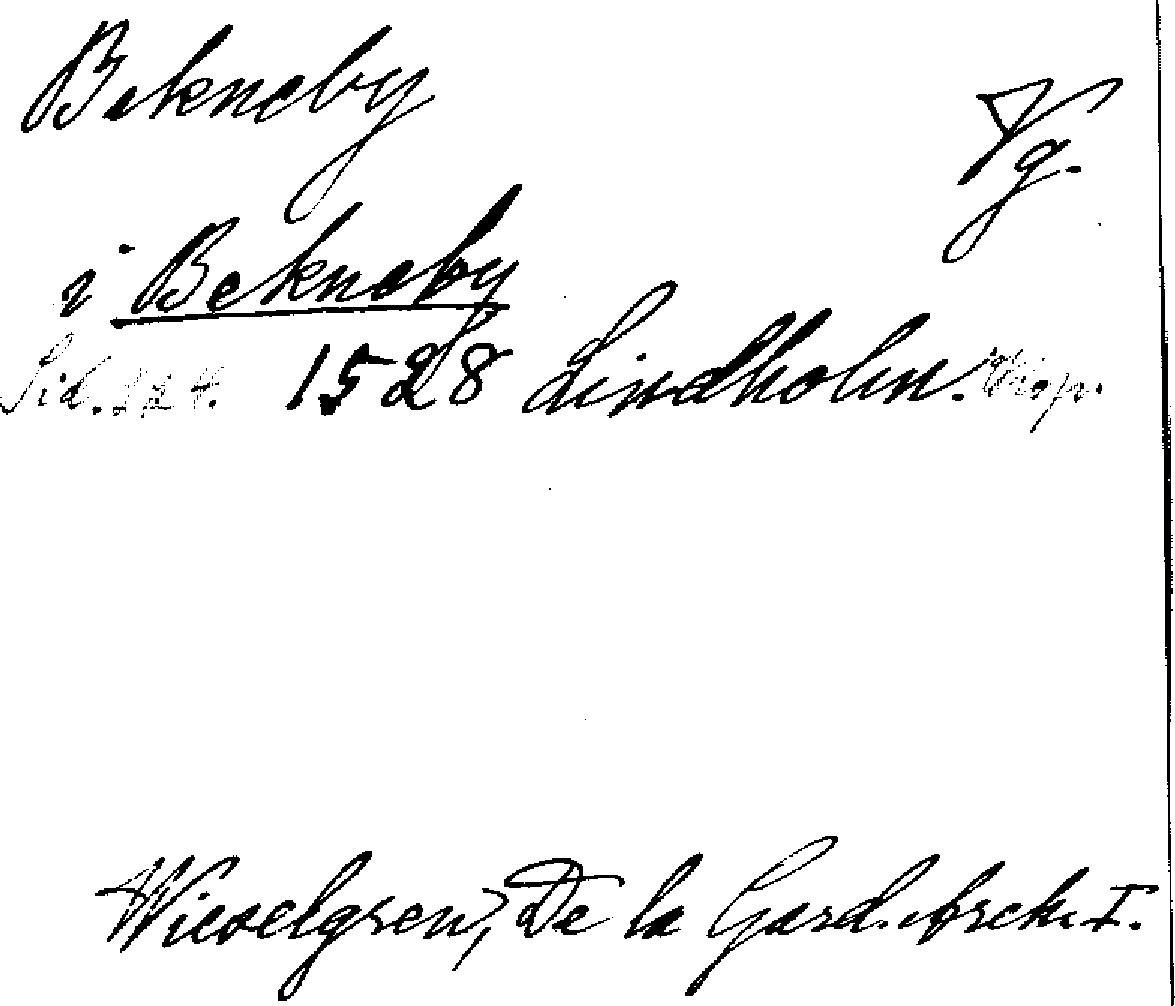 Bekneby
Vg.
i Bekneby
Sid. 124. 1528 Lindholm.
Wieselgren, De la Gard. Arch. I.